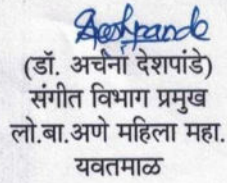 Deshpande
(डॉ. अर्चना देशपांडे)
संगीत विभाग प्रमुख
लो.बा.अणे महिला महा.
यवतमाळ